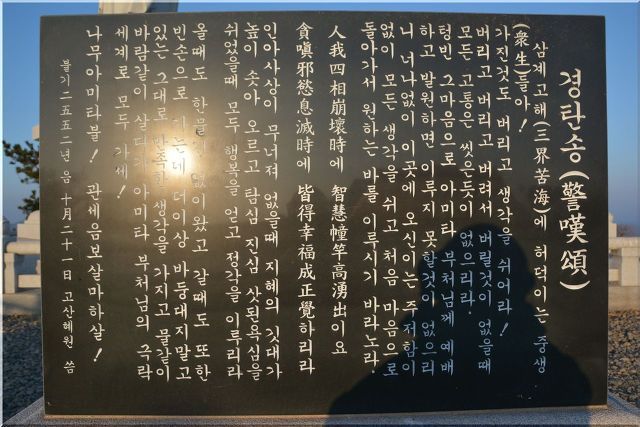 경탄송(警嘆頌)
삼계고해(三界苦海)에 허덕이는 중생
(衆生)들아!
가진것도 버리고 생각을 쉬어라!
버리고 버리고 버려서 버릴것이 없을때
모든 고통은 씻은듯이 없으리라.
텅빈 그마음으로 아미타 부처님께 예배
하고 발원하면 이루지 못할것이 없으리
니 너나없이 이곳에 오신이는 주저함이
없이 모든 생각을 쉬고 처음 마음으로
돌아가서 원하는 바를 이루시기 바라노라.
人我四相崩壞時에 智慧幢竿高湧出이요
貪嗔邪慾息滅時에 皆得幸福成正覺하리라
인아사상이 무너져 없을때 지혜의 깃대가
높이 솟아 오르고 탐심 진심 삿된욕심을
쉬었을때 모두 행복을 얻고 정각을 이루리라
올때도 한물건 없이왔고 갈때도 또한
빈손으로 가는데 더이상 바둥대지말고
있는 그대로 만족한 생각을 가지고 물같이
바람같이 살다가 아미타 부처님의 극락
세계로 모두 가세!
나무아미타불! 관세음보살마하살!
불기 二五五二년 음 十月二十一日 고산혜원 씀